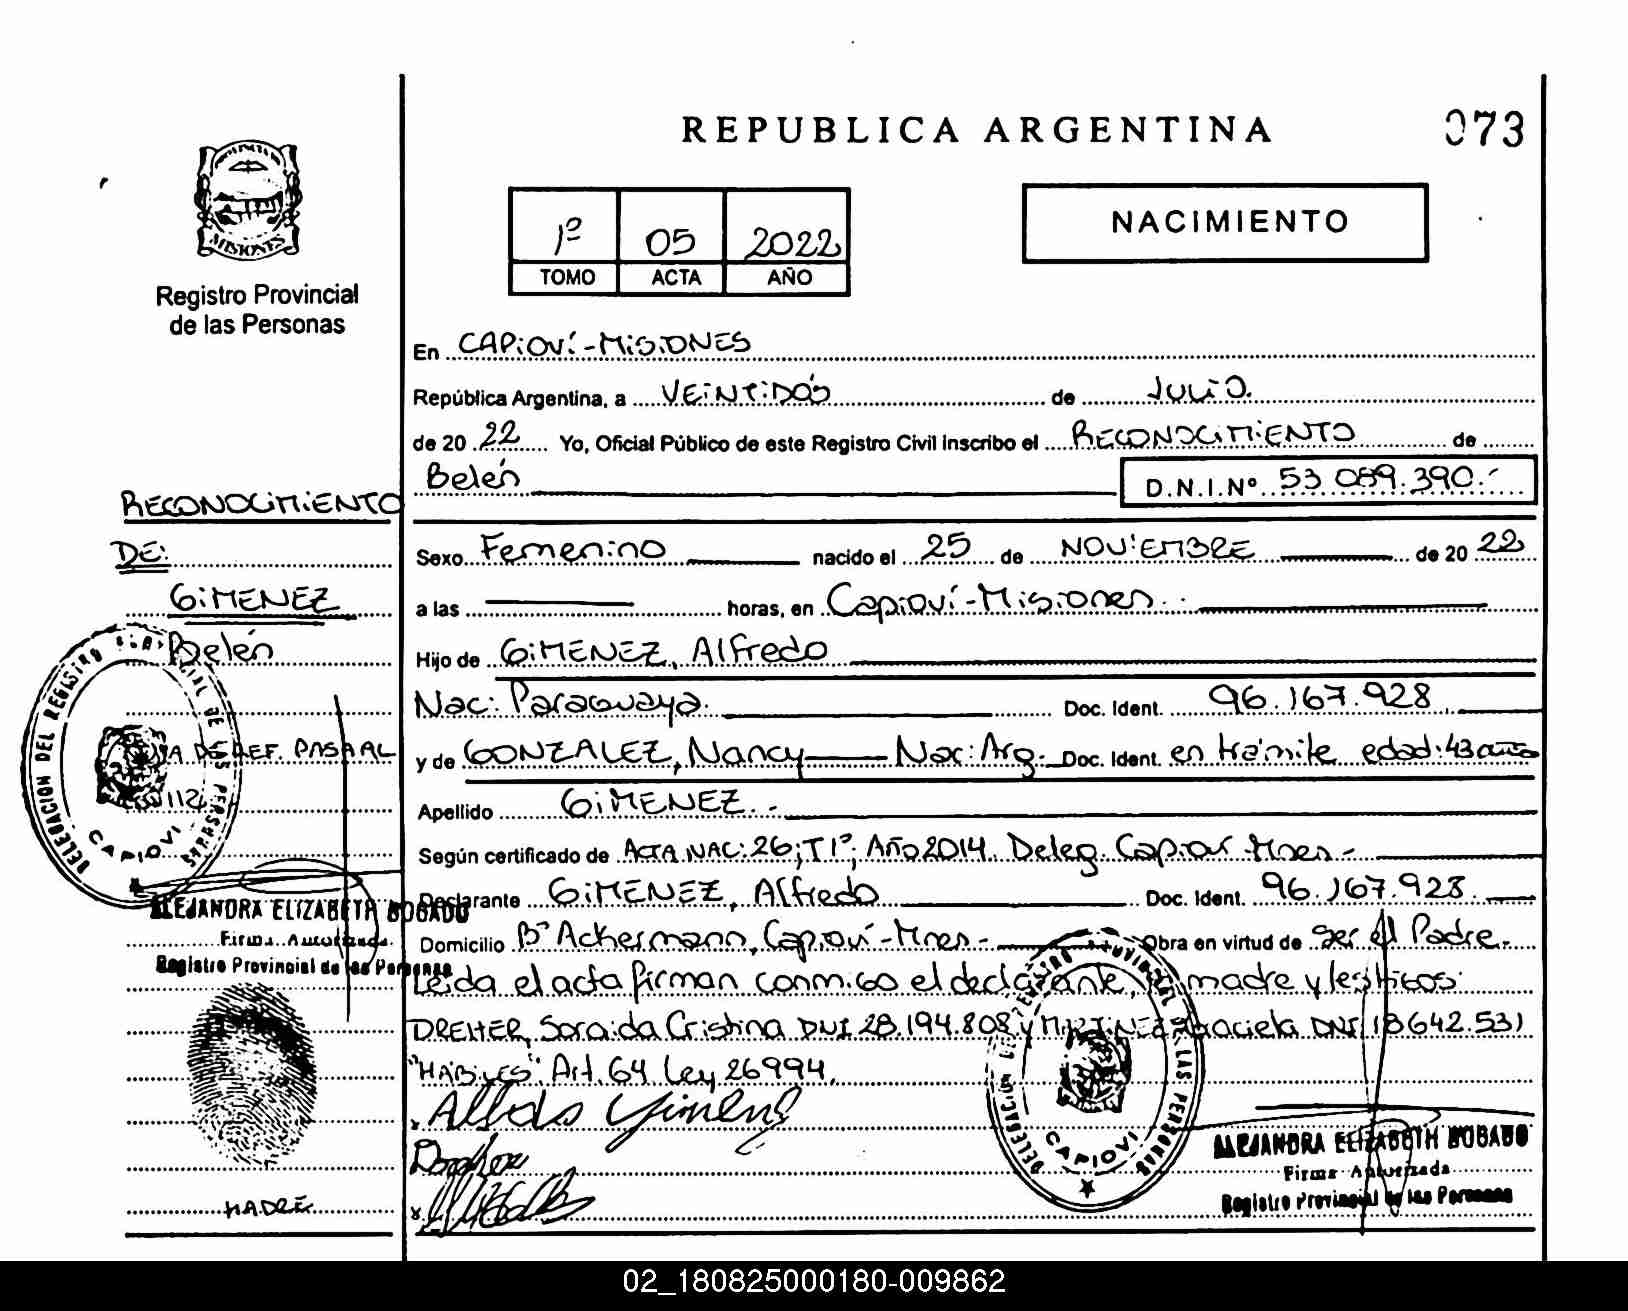 REPUBLICA ARGENTINA
073
MISIONES
Registro Provincial
de las Personas
1º 05 2022
TOMO ACTA AÑO
NACIMIENTO
En CAPIOVÍ-MISIONES
República Argentina, a VEINTIDÓS de JULIO.
de 20 22 Yo, Oficial Público de este Registro Civil inscribo el RECONOCIMIENTO de
Belén D.N.I.Nº 53.089.390.-
Sexo Femenino nacido el 25 de NOVIEMBRE de 20 22
a las horas, en Capioví-Misiones.
Hijo de GIMENEZ, Alfredo
Nac: Paraguaya. Doc. Ident. 96.167.928
y de GONZALEZ, Nancy Nac: Arg. Doc. Ident. en trámite edad: 43 años
Apellido GIMENEZ.-
Según certificado de ACTA NAC: 26; Tº 1º; Año 2014. Deleg. Capioví Mnes-
Declarante GIMENEZ, Alfredo Doc. Ident. 96.167.928
Domicilio Bº Ackermann, Capioví-Mnes- Obra en virtud de ser el Padre.
Leida el acta firman conmigo el declarante, la madre y testigos
DREHER, Soraida Cristina DNI 28.194.808 y MARTINEZ Graciela DNI 18642.531
"HÁBILES" Art. 64 Ley 26994.
Alfredo Gimenez
RECONOCIMIENTO
DE:
GIMENEZ
Belén
DELEGACION DEL REGISTRO PROVINCIAL DE LAS PERSONAS
CAPIOVI
ALEJANDRA ELIZABETH BOBADO
Firma Autorizada
Registro Provincial de las Personas
MADRE
DELEGACION DEL REGISTRO PROVINCIAL DE LAS PERSONAS
CAPIOVI
ALEJANDRA ELIZABETH BOBADO
Firma Autorizada
Registro Provincial de las Personas
02_180825000180-009862